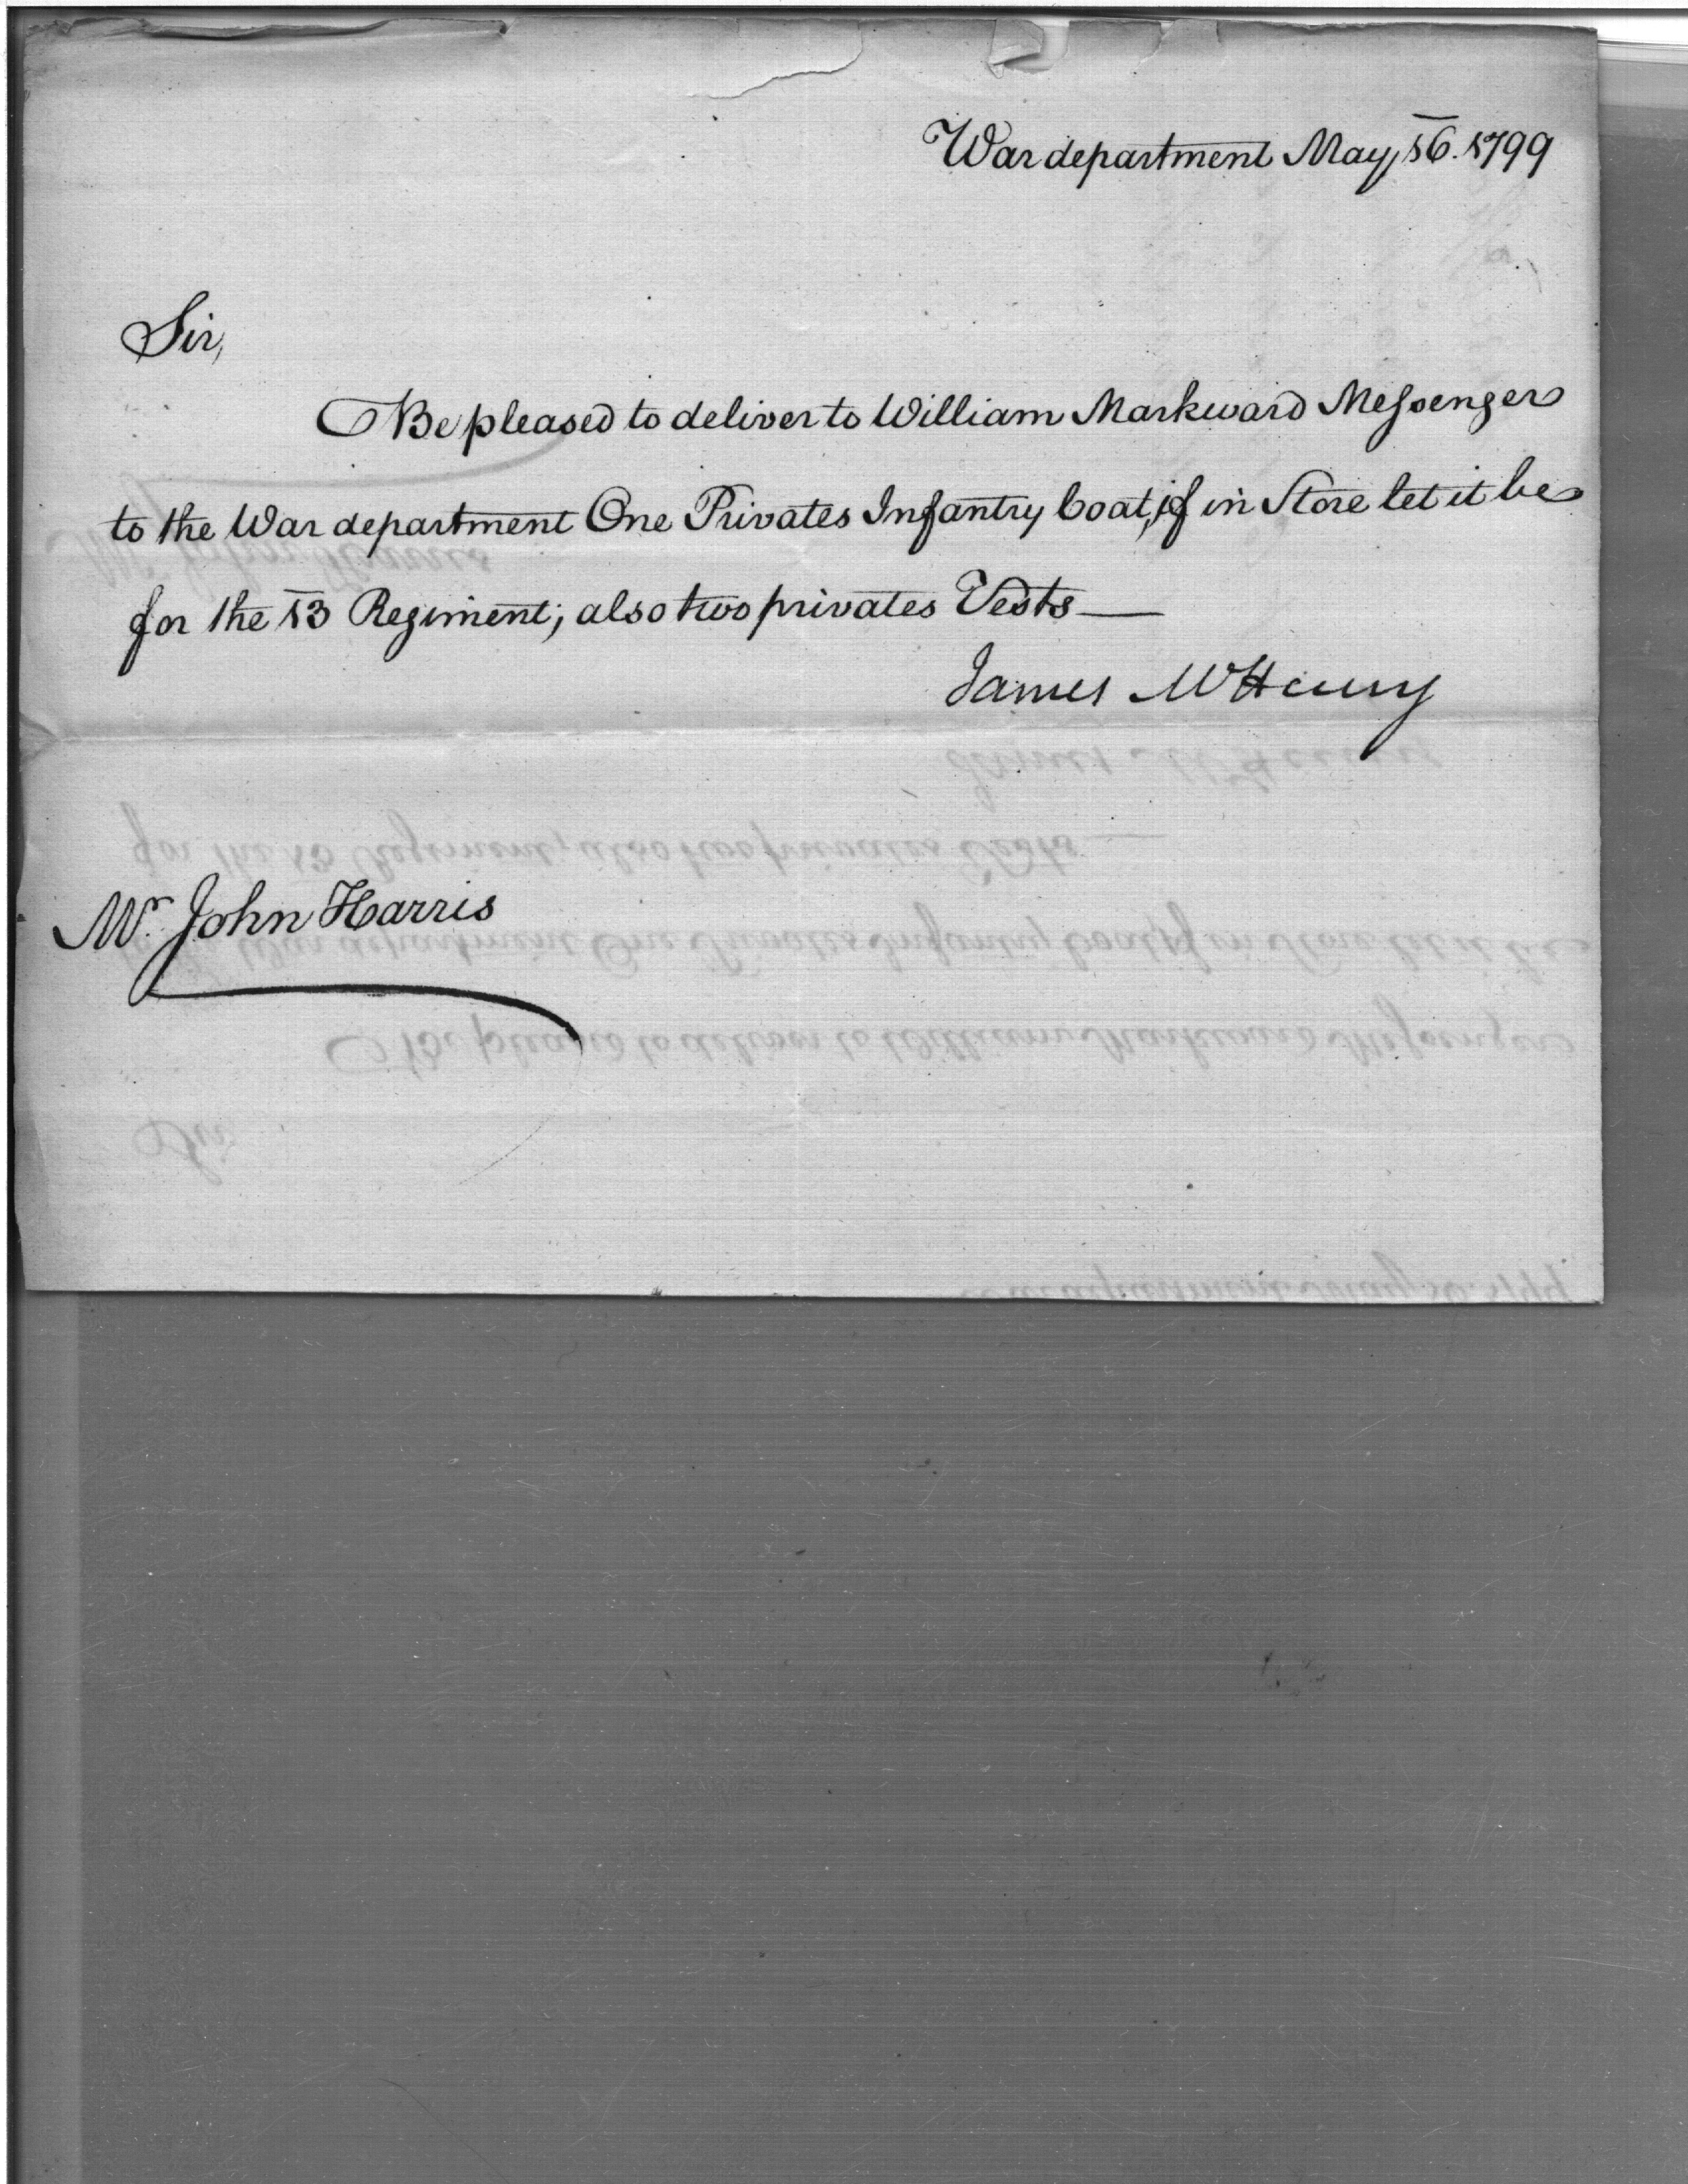 War department May 16. 1799
Sir,
Be pleased to deliver to William Markward Messenger
to the War department One Privates Infantry Coat, if in Store let it be
for the 13 Regiment; also two privates Vests—
James McHenry
Mr. John Harris